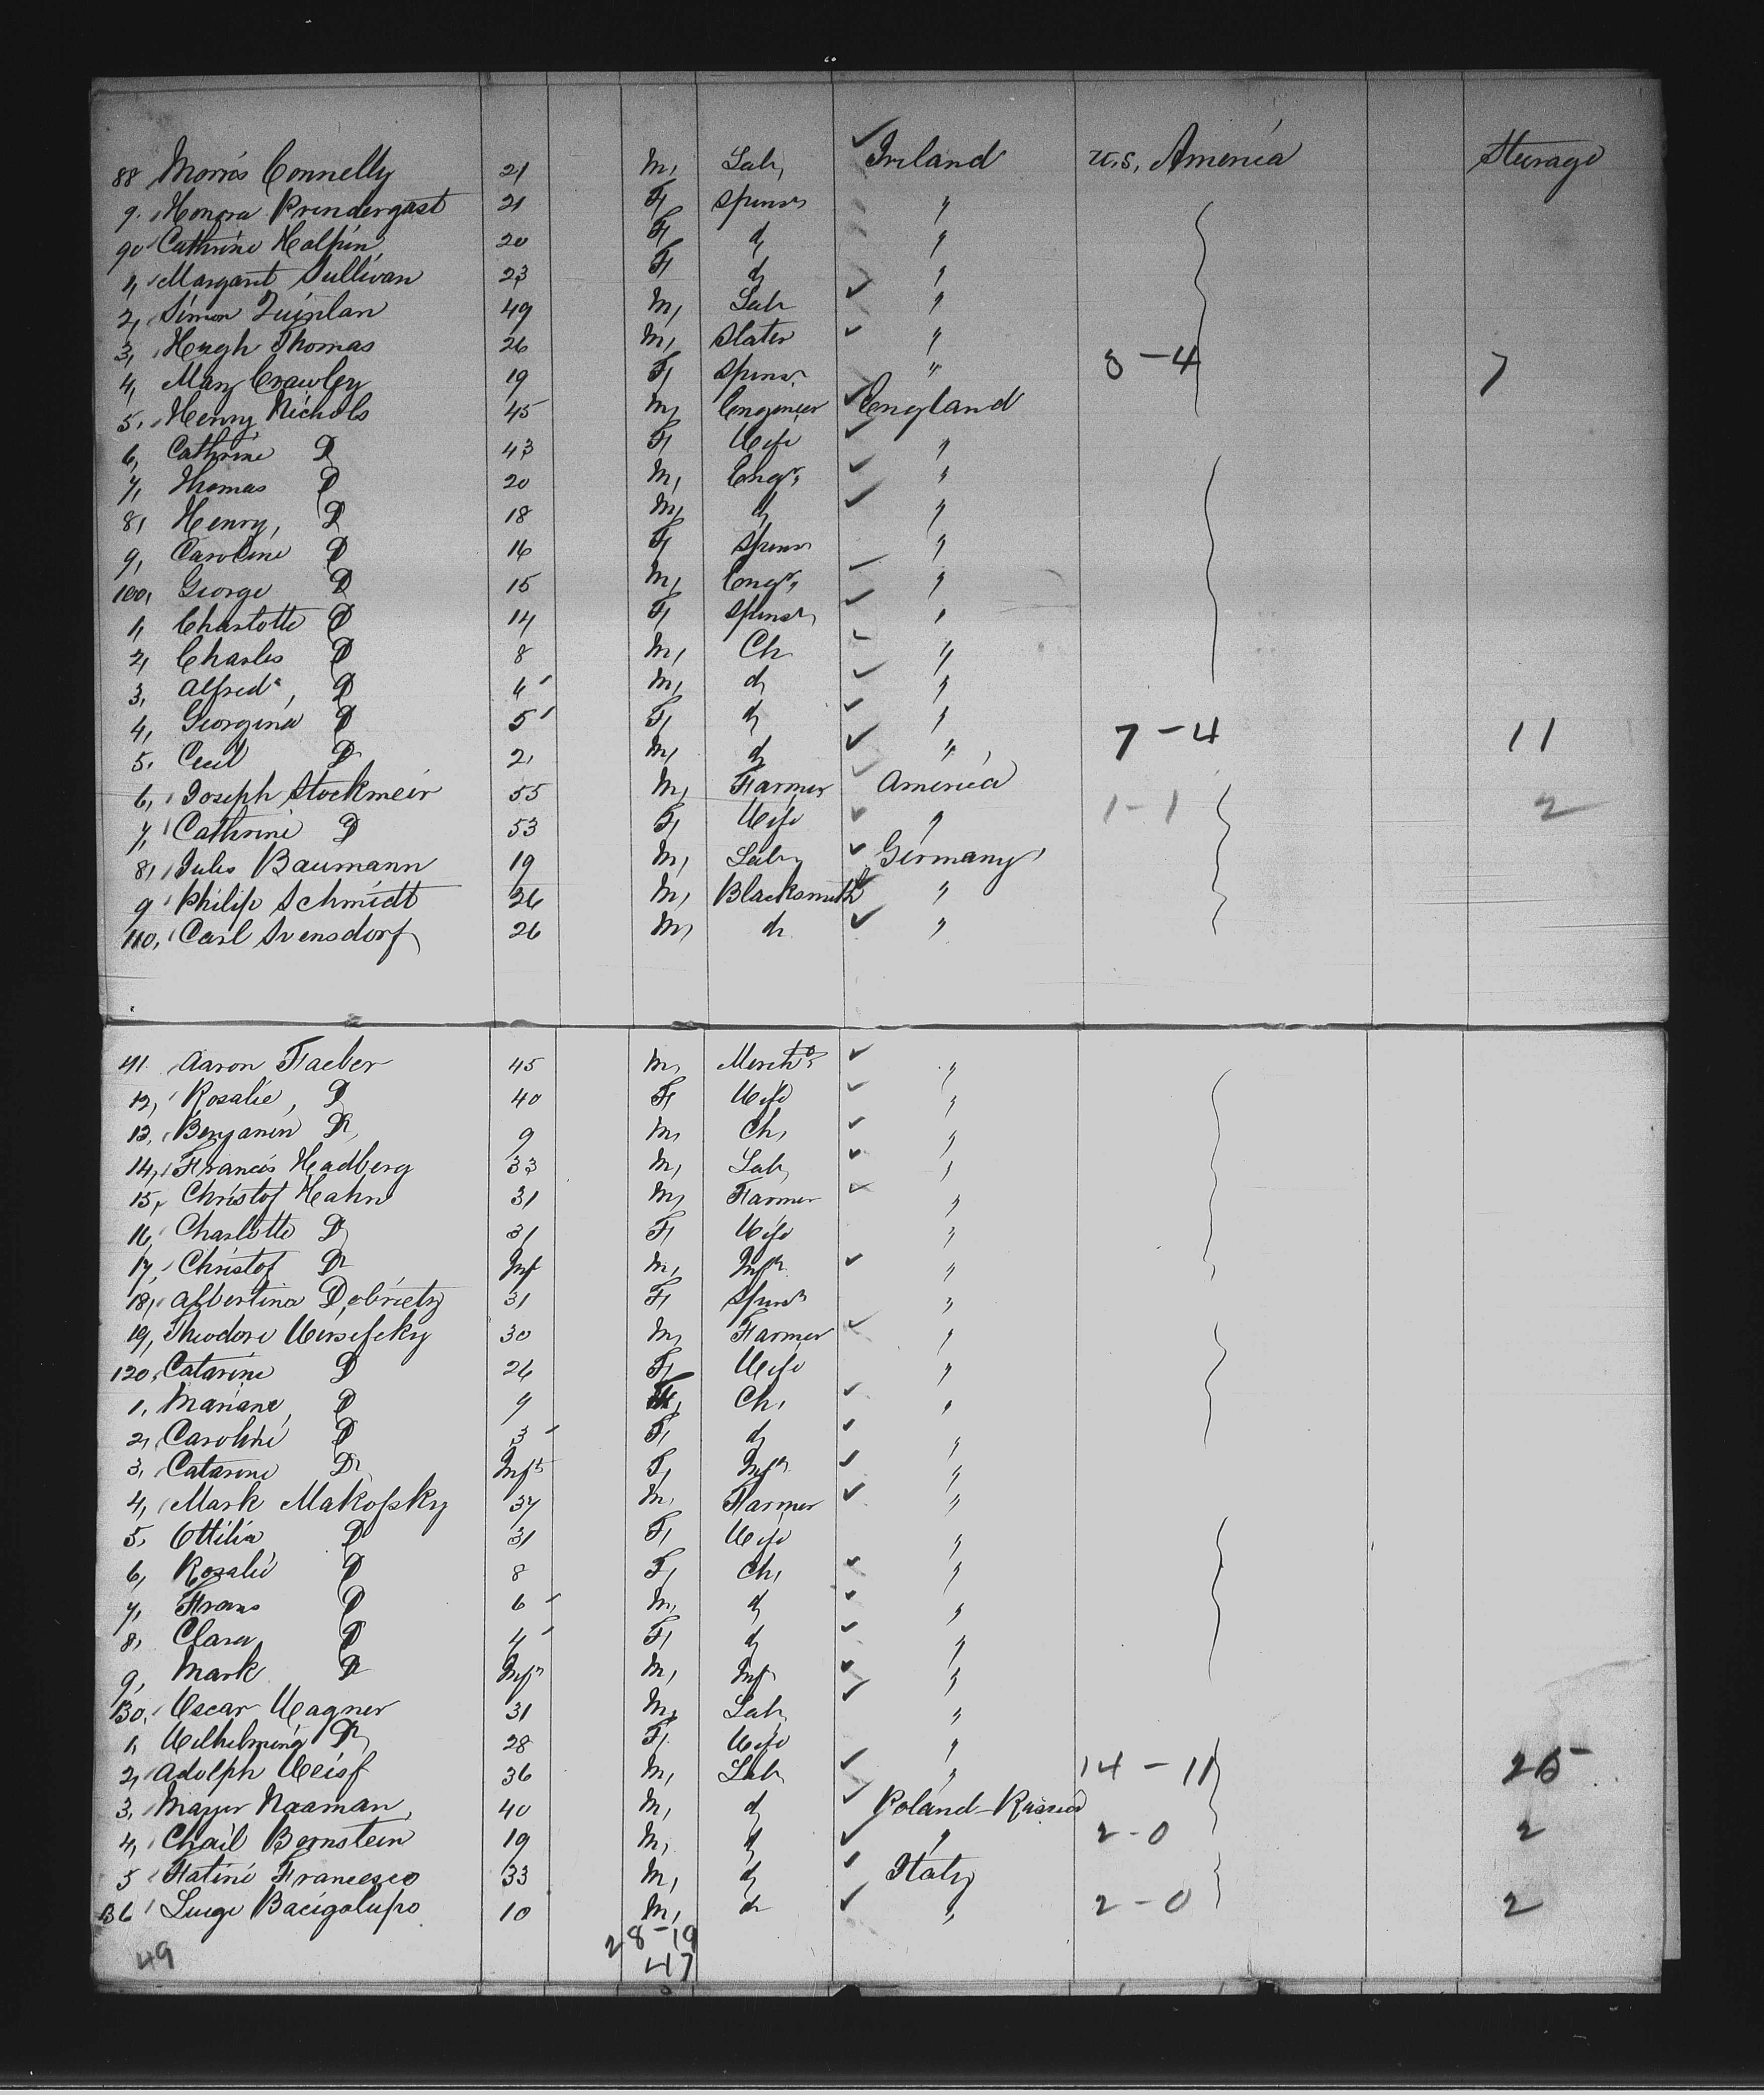 88 Morris Connelly 21 M, Lab, Ireland U.S. America Steerage
9. Honora Prendergast 21 F, Spinsr "
90 Cathrine Halpin 20 F, do "
1, Margaret Sullivan 23 F, do "
2, Simon Quinlan 49 M, Lab "
3, Hugh Thomas 26 M, Slater "
4, Mary Crawley 19 F, Spinsr " 3-4 7
5, Henry Nichols 45 M, Engineer England
6, Cathrine Do 43 F, Wife "
7, Thomas Do 20 M, Engr, "
8, Henry, Do 18 M, do "
9, Caroline Do 16 F, Spinsr "
100, George Do 15 M, Engr, "
1, Charlotte Do 14 F, Spinsr, "
2, Charles Do 8 M, Ch "
3, Alfred, Do 4 M, do "
4, Georgina Do 5 F, do " 7-4 11
5, Cecil Do 2, M, do "
6, Joseph Stockmeir 55 M, Farmer America 1-1 2
7, Cathrine Do 53 F, Wife "
8, Jules Baumann 19 M, Lab, Germany
9 Philip Schmidt 26 M, Blacksmith "
110, Carl Svensdorf 26 M, do "
111. Aaron Faeber 45 M, Mercht, "
12, Rosalie, Do 40 F, Wife "
13, Benjamin Do 9 M, Ch, "
14, Francis Hadberg 33 M, Lab, "
15, Christof Hahn 31 M, Farmer "
16, Charlotte Do 31 F, Wife "
17, Christof Do Inf M, Inft "
18, Albertina Debrietz 31 F, Spinsr "
19, Theodore 30 M, Farmer "
120, Catarine Do 26 F, Wife "
1, Mariane, Do 9 F, Ch, "
2, Caroline Do 3 F, do "
3, Catarine Do Inft F, Inft "
4, Mark Makofsky 37 M, Farmer "
5, Ottilia Do 31 F, Wife "
6, Rosalie Do 8 F, Ch, "
7, Frans Do 6 M, do "
8, Clara Do 4 F, do "
9, Mark Do Inft M, Inf "
130, Oscar Wagner 31 M, Lab, "
1, Wilhelmina Do 28 F, Wife "
2, Adolph Weisf 36 M, Lab, " 14-11 25
3, Mazyer Naaman, 40 M, do Poland-Russia
4, Chail Bernstein 19 M, do " 2-0 2
5 Fatini Francesco 33 M, do Italy
136 Luigi Bacigalupo 10 M, do " 2-0 2
28-19
49 47